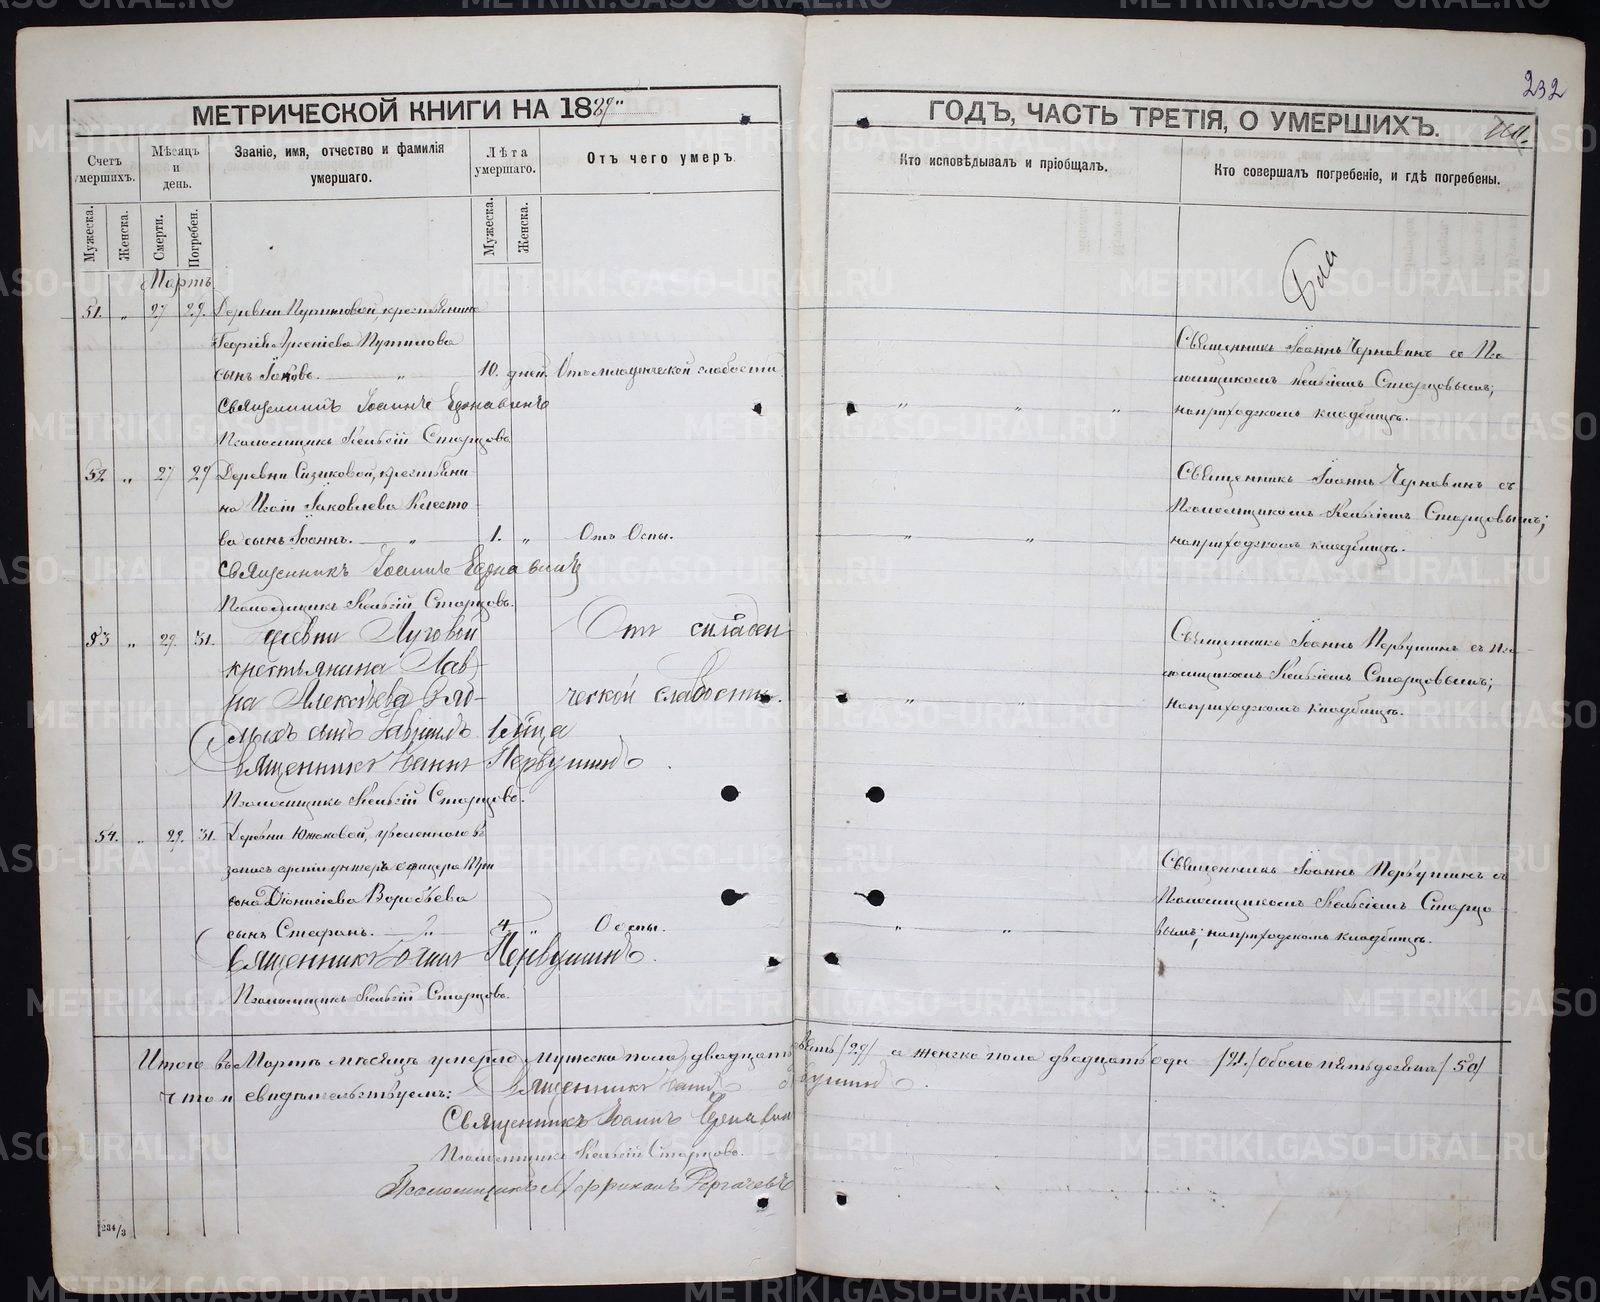 232
МЕТРИЧЕСКОЙ КНИГИ НА 1889
ГОДЪ, ЧАСТЬ ТРЕТІЯ, О УМЕРШИХЪ.
Счетъ умершихъ.
Мѣсяцъ и день.
Званіе, имя, отчество и фамилія умершаго.
Лѣта умершаго.
Отъ чего умеръ.
Кто исповѣдывалъ и пріобщалъ.
Кто совершалъ погребеніе, и гдѣ погребены.
Мужеска.
Женска.
Смерти.
Погребен.
Мужеска.
Женска.
Мартъ
51. " 27 29. Деревни Путиловой, крестьянина
Георгія Арсеніева Путилова
сынъ Іаковъ. " 10. дней. Отъ младенческой слабости.
Священникъ Іоаннъ Чернавинъ съ Пса
ломщикомъ Старцовымъ;
на приходскомъ кладбищѣ.
Священникъ Іоаннъ Чернавинъ
Псаломщикъ Старцовъ.
52. " 27 29 Деревни Сизиковой, крестьяни
на Іаковлева Клесто
ва сынъ Іоаннъ. " 1. " Отъ Оспы.
Священникъ Іоаннъ Чернавинъ съ
Псаломщикомъ Старцовымъ;
на приходскомъ кладбищѣ.
Священникъ Іоаннъ Чернавинъ
Псаломщикъ Старцовъ.
53 " 29. 31. Деревни Луговой
крестьянина Лав
ра Алексѣева
сынъ Гавріилъ
Отъ младен
ческой слабости.
Священникъ Іоаннъ Первушинъ съ Пса
ломщикомъ Старцовымъ;
на приходскомъ кладбищѣ.
Священникъ Іоаннъ Первушинъ
Псаломщикъ Старцовъ.
54. " 29. 31. Деревни Южаковой, уволеннаго въ
запасъ арміи унтеръ офицера
Діонисіева Воробьева
сынъ Стефанъ. " 4. " Оспы.
Священникъ Іоаннъ Первушинъ съ
Псаломщикомъ Старцо
вымъ; на приходскомъ кладбищѣ.
Священникъ Іоаннъ Первушинъ
Псаломщикъ Старцовъ.
Итого въ Мартѣ мѣсяцѣ умерло мужеска пола двадцать девять /29/ а женска пола двадцать одн /21./ Обоего пятьдесятъ /50/
Что и свидѣтельствуемъ: Священникъ Іоаннъ Первушинъ.
Священникъ Іоаннъ Чернавин
Псаломщикъ Старцовъ.
Псаломщикъ
234/3
METRIKI.GASO-URAL.RU